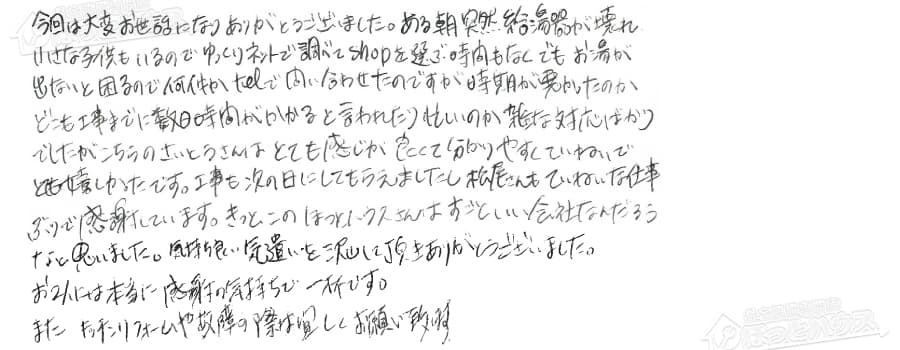 今回は大変お世話になりありがとうございました。ある朝突然給湯器が壊れ
小さな子供もいるのでゆっくりネットで調べてshopを選ぶ時間もなくでもお湯が
出ないと困るので何件かtelで問い合わせたのですが時期が悪かったのか
どこも工事までに数日時間がかかると言われたり忙しいのか雑な対応ばかり
でしたがこちらのさいとうさんはとても感じが良くて分かりやすくていねいで
とても嬉しかったです。工事も次の日にしてもらえましたし松尾さんもていねいな仕事
ぶりで感謝しています。きっとこのほっとハウスさんはすごくいい会社なんだろう
なと思いました。気持ち良い気遣いを沢山して頂きありがとうございました。
お2人には本当に感謝の気持ちで一杯です。
また キッチンリフォームや故障の際は宜しくお願い致します
ほっとハウス